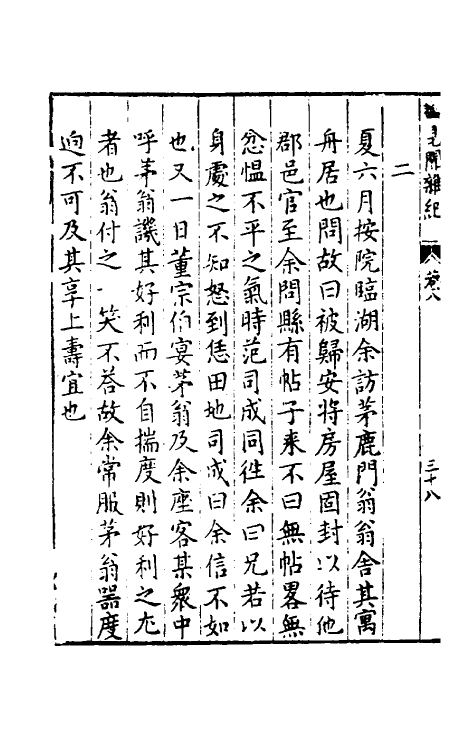 見聞雜紀
卷八
三十八
二
夏六月按院臨湖余訪茅鹿門翁翁舍其寓
舟居也問故曰被歸安將房屋固封以待他
郡邑官至余問縣有帖子來不曰無帖畧無
忿慍不平之氣時范司成同往余曰兄若以
身處之不知怒到恁田地司成曰余信不如
也又一日董宗伯宴茅翁及余座客某衆中
呼茅翁譏其好利而不自揣度則好利之尤
者也翁付之一笑不荅故余常服茅翁噐度
逈不可及其享上壽宜也